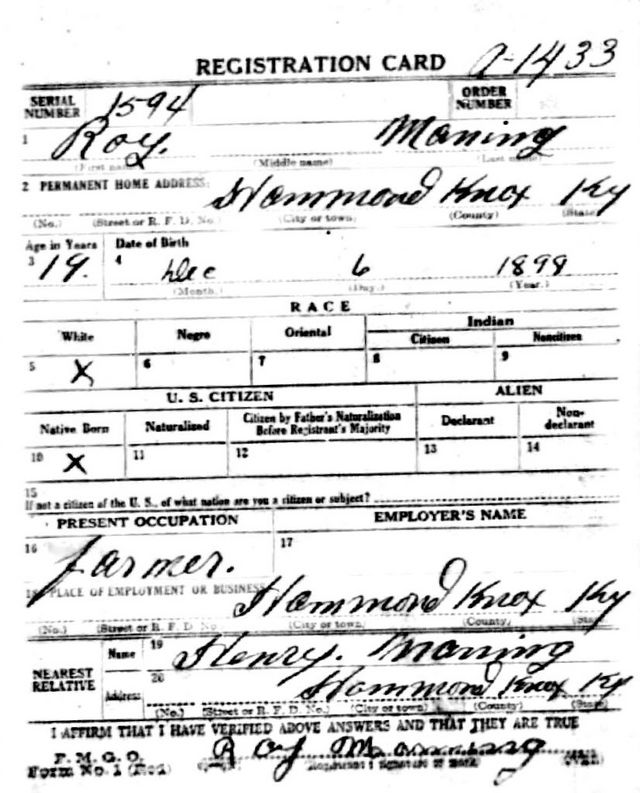 REGISTRATION CARD a-1433
SERIAL NUMBER 1594 ORDER NUMBER
1 Roy. Maning
(First name) (Middle name) (Last name)
2 PERMANENT HOME ADDRESS: Hammond Knox Ky
(No.) (Street or R. F. D. No.) (City or town) (County) (State)
Age in Years Date of Birth
3 19. 4 Dec 6 1898
(Month.) (Day.) (Year.)
RACE
White Negro Oriental Indian
Citizen Noncitizen
5 X 6 7 8 9
U. S. CITIZEN ALIEN
Native Born Naturalized Citizen by Father's Naturalization Before Registrant's Majority Declarant Non-declarant
10 X 11 12 13 14
15
If not a citizen of the U. S., of what nation are you a citizen or subject?
PRESENT OCCUPATION EMPLOYER'S NAME
16 farmer. 17
18 PLACE OF EMPLOYMENT OR BUSINESS: Hammond Knox Ky
(No.) (Street or R. F. D. No.) (City or town) (County) (State)
NEAREST RELATIVE Name 19 Henry. Maning
Address 20 Hammond Knox Ky
(No.) (Street or R. F. D. No.) (City or town) (County) (State)
I AFFIRM THAT I HAVE VERIFIED ABOVE ANSWERS AND THAT THEY ARE TRUE
P. M. G. O.
Form No. 1 (Red) Roy Manning
(Registrant's signature or mark)